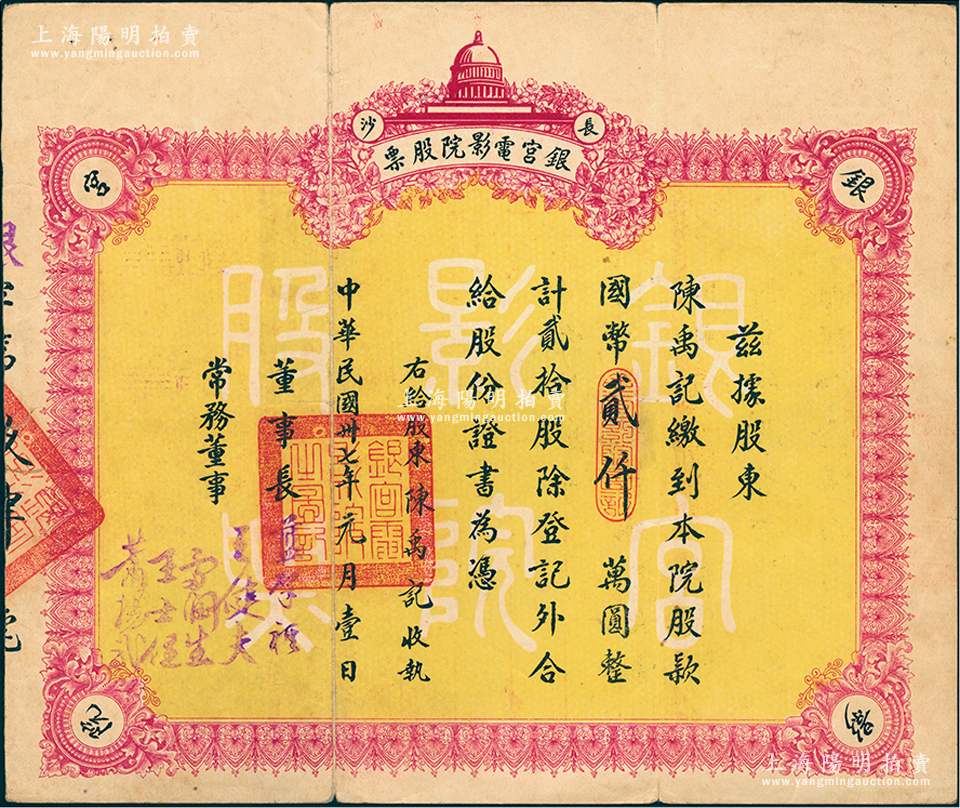 上海陽明拍賣
www.yangmingauction.com
長沙
銀宮電影院股票
銀
茲據股東
陳禹記繳到本院股款
國幣貳仟萬圓整
計貳拾股除登記外合
給股份證書為憑
右給股東陳禹記收執
中華民國卅七年元月壹日
董事長
常務董事
銀宮
影院
股票
上海陽明拍賣
www.yangmingauction.com
上海陽明拍賣
www.yangmingauction.com